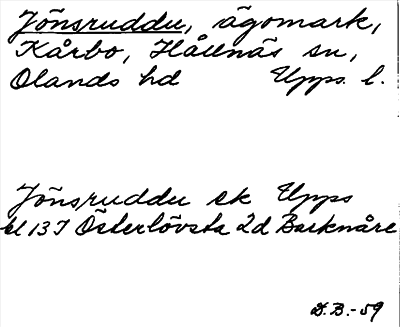 Jönsruddu, ägomark,
Kårbo, Hållnäs sn,
Olands hd Upps. l.
Jönsruddu ek Upps
bl 13 I Österlövsta 2d Barknåre
D.B.-59